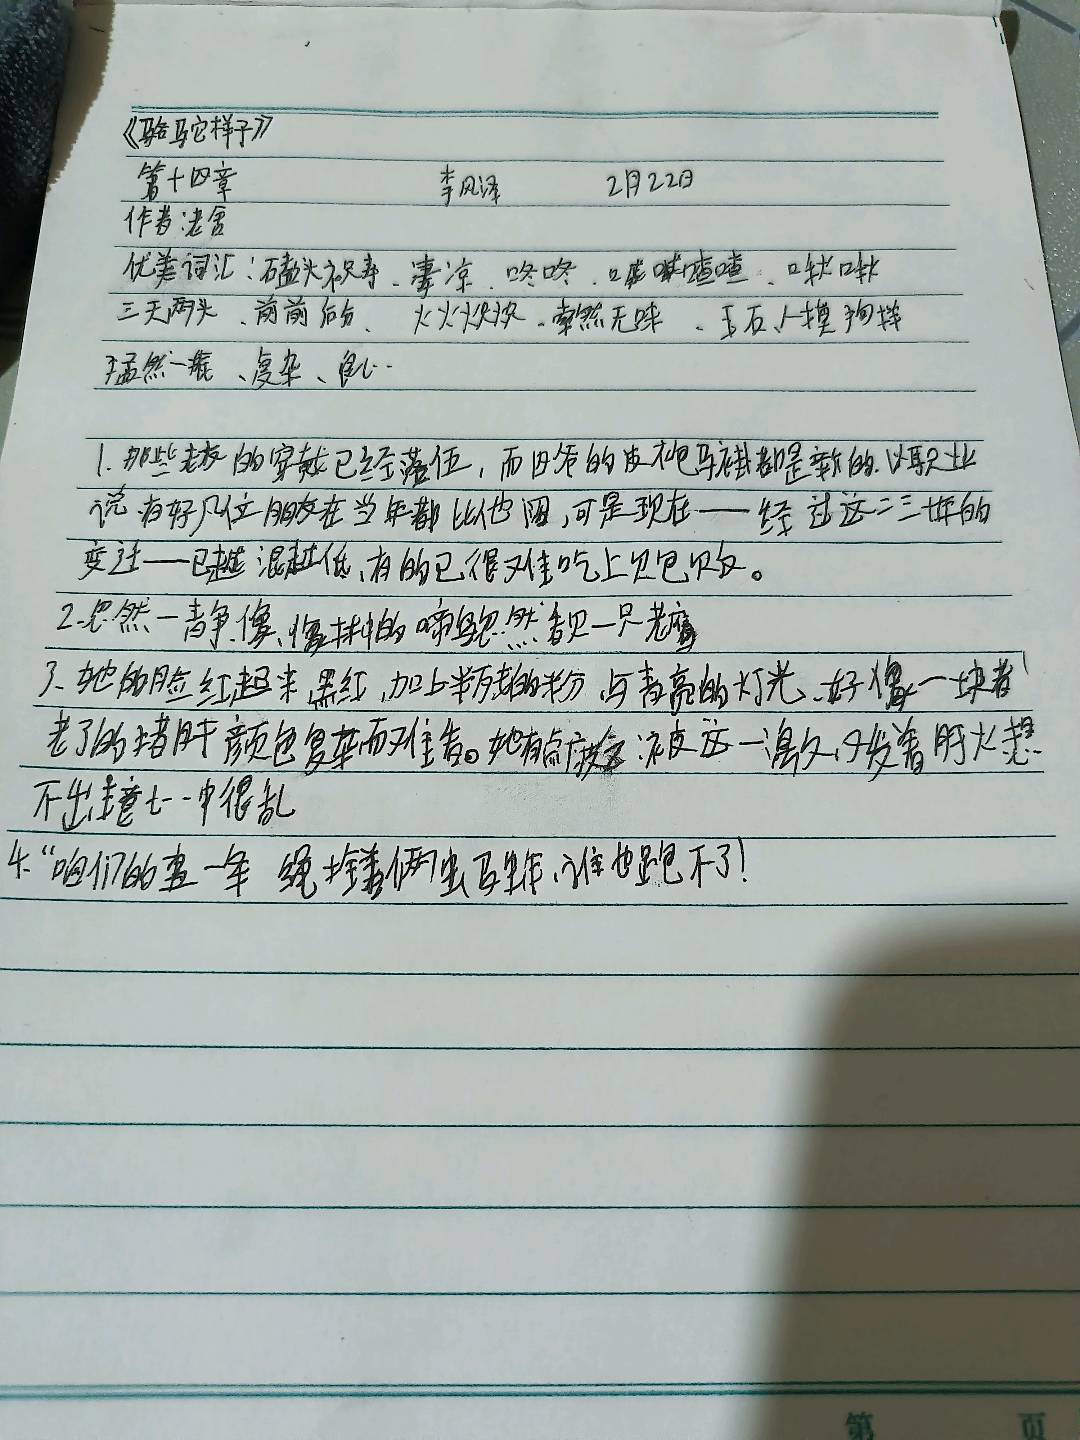 《骆驼祥子》
第十四章 李风泽 2月22日
作者:老舍
优美词汇:磕头祝寿、凄凉、咚咚、喳喳、
三天两头、前前后后、索然无味、玉石、人模狗样
猛然一棍、复杂、良心
1.那些老板的穿戴已经落伍,而四爷的皮袍马褂都是新的.以职业
说.有好几位朋友在当年都比他阔,可是现在——经过这二三十年的
变迁——已越混越低,有的已很难吃上饱饭。
2.忽然一静.像.像林中的啼鸟忽然看见一只老鹰
3.她的脸红起来,黑红,加上半残的粉,与青亮的灯光、好像一块煮
老了的猪肝颜色复杂而难看。她有点疲乏被这一激又发着肝火想
不出主意心中很乱
4."咱们的事一条绳拴着俩蚂蚱,谁也跑不了!
第 页